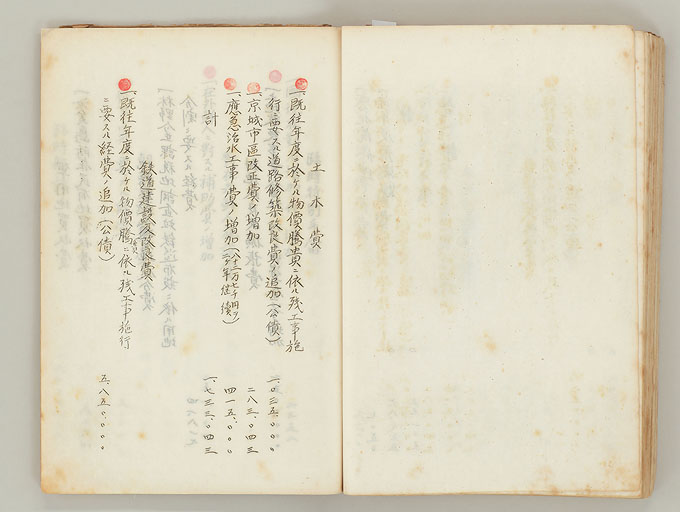 土木費
一、既往年度ニ於ケル物價騰貴ニ依ル残工事施
行ニ要スル道路修築改良費ノ追加(公債) 一、〇三五、〇〇〇
一、京城市區改正費ノ増加 二八三、〇四三
一、應急治水工事費ノ増加(八十三万七千円ヲ二ヶ年継續) 四一五、〇〇〇
計 一、七三三、〇四三
鉄道建設及改良費
一、既往年度ニ於ケル物價騰貴ニ依ル残工事施行
ニ要スル経費ノ追加(公債) 五、八五〇、〇〇〇